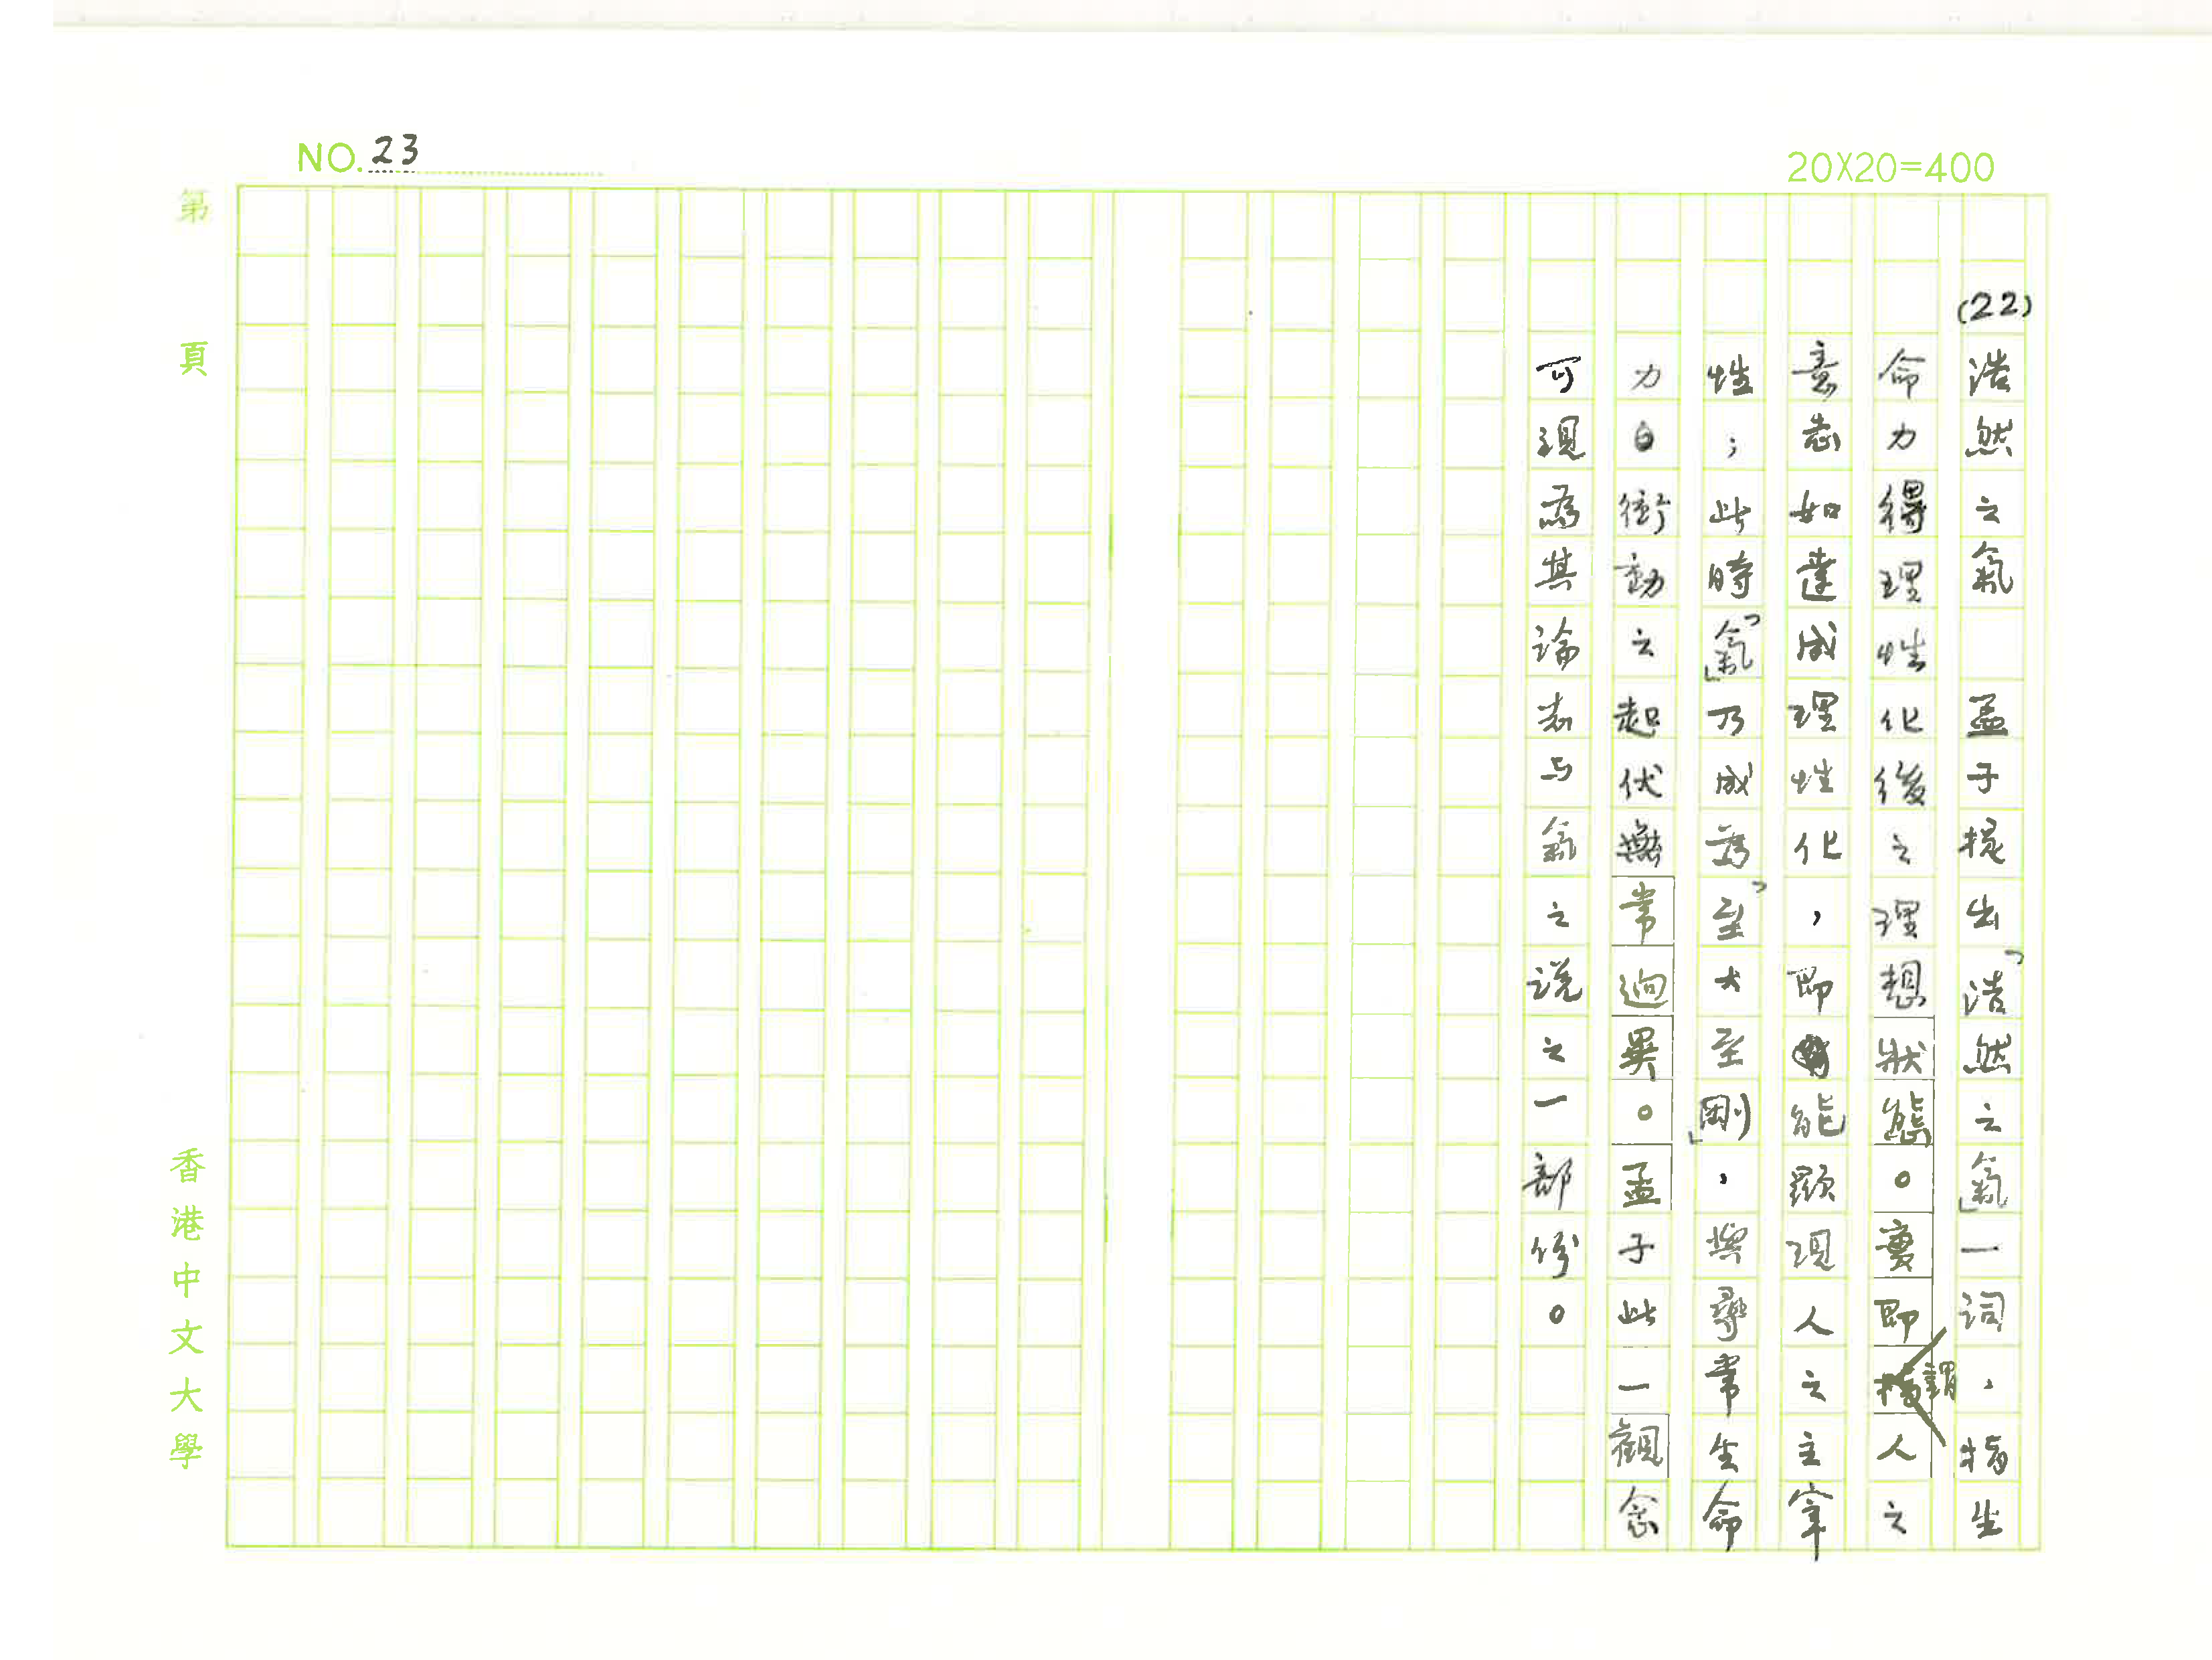 NO. 23
20X20=400
(22)
浩然之氣　孟子提出「浩然之氣」一詞，指生
命力得理性化後之理想狀態。實即謂人之
意志如達成理性化，即能顯現人之主宰
性；此時「氣」乃成為「至大至剛」，與尋常生命
力衝動之起伏無常迥異。孟子此一觀念
可視為其論志与氣之說之一部份。
第 頁
香港中文大學